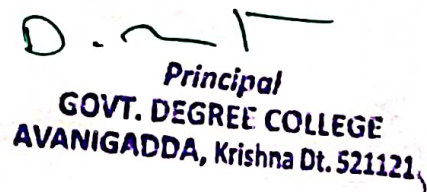 Principal
GOVT. DEGREE COLLEGE
AVANIGADDA, Krishna Dt. 521121,